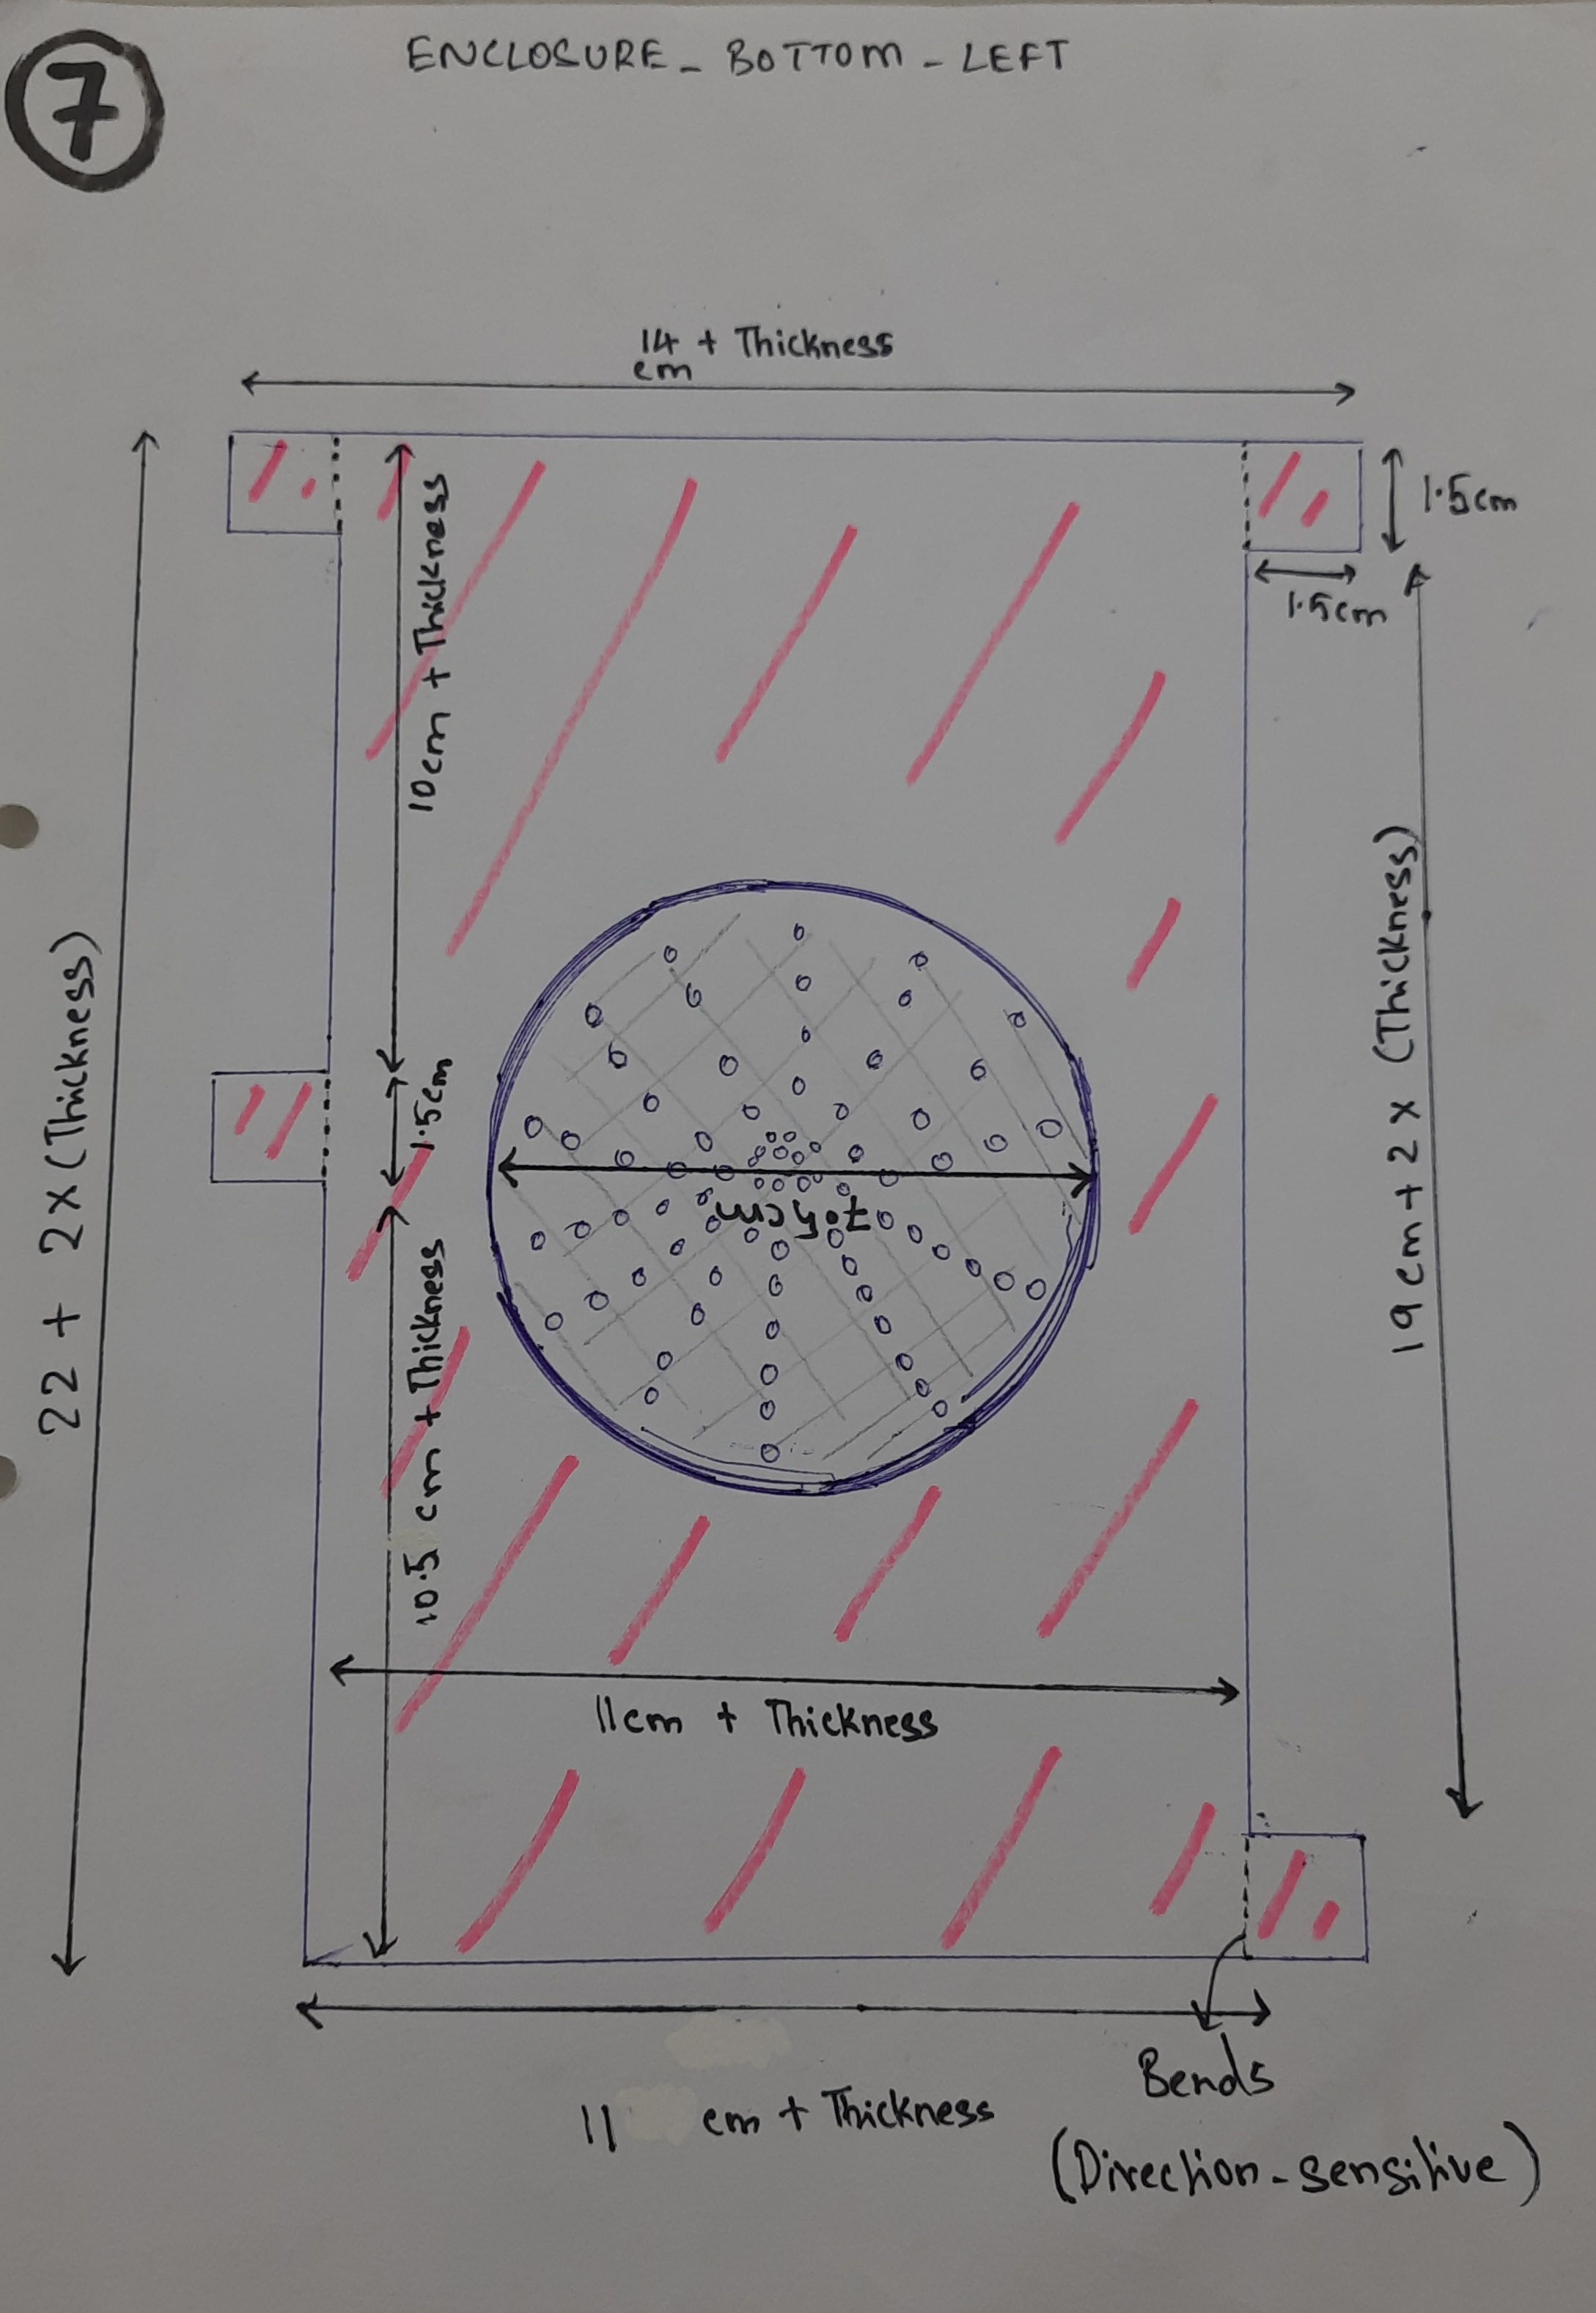 7
ENCLOSURE - BOTTOM - LEFT
14 + Thickness
cm
1.5cm
1.5cm
10cm + Thickness
1.5cm
10.5 cm + Thickness
22 + 2x (Thickness)
19 cm + 2x (Thickness)
7.5cm
11cm + Thickness
11 cm + Thickness
Bends
(Direction-sensitive)